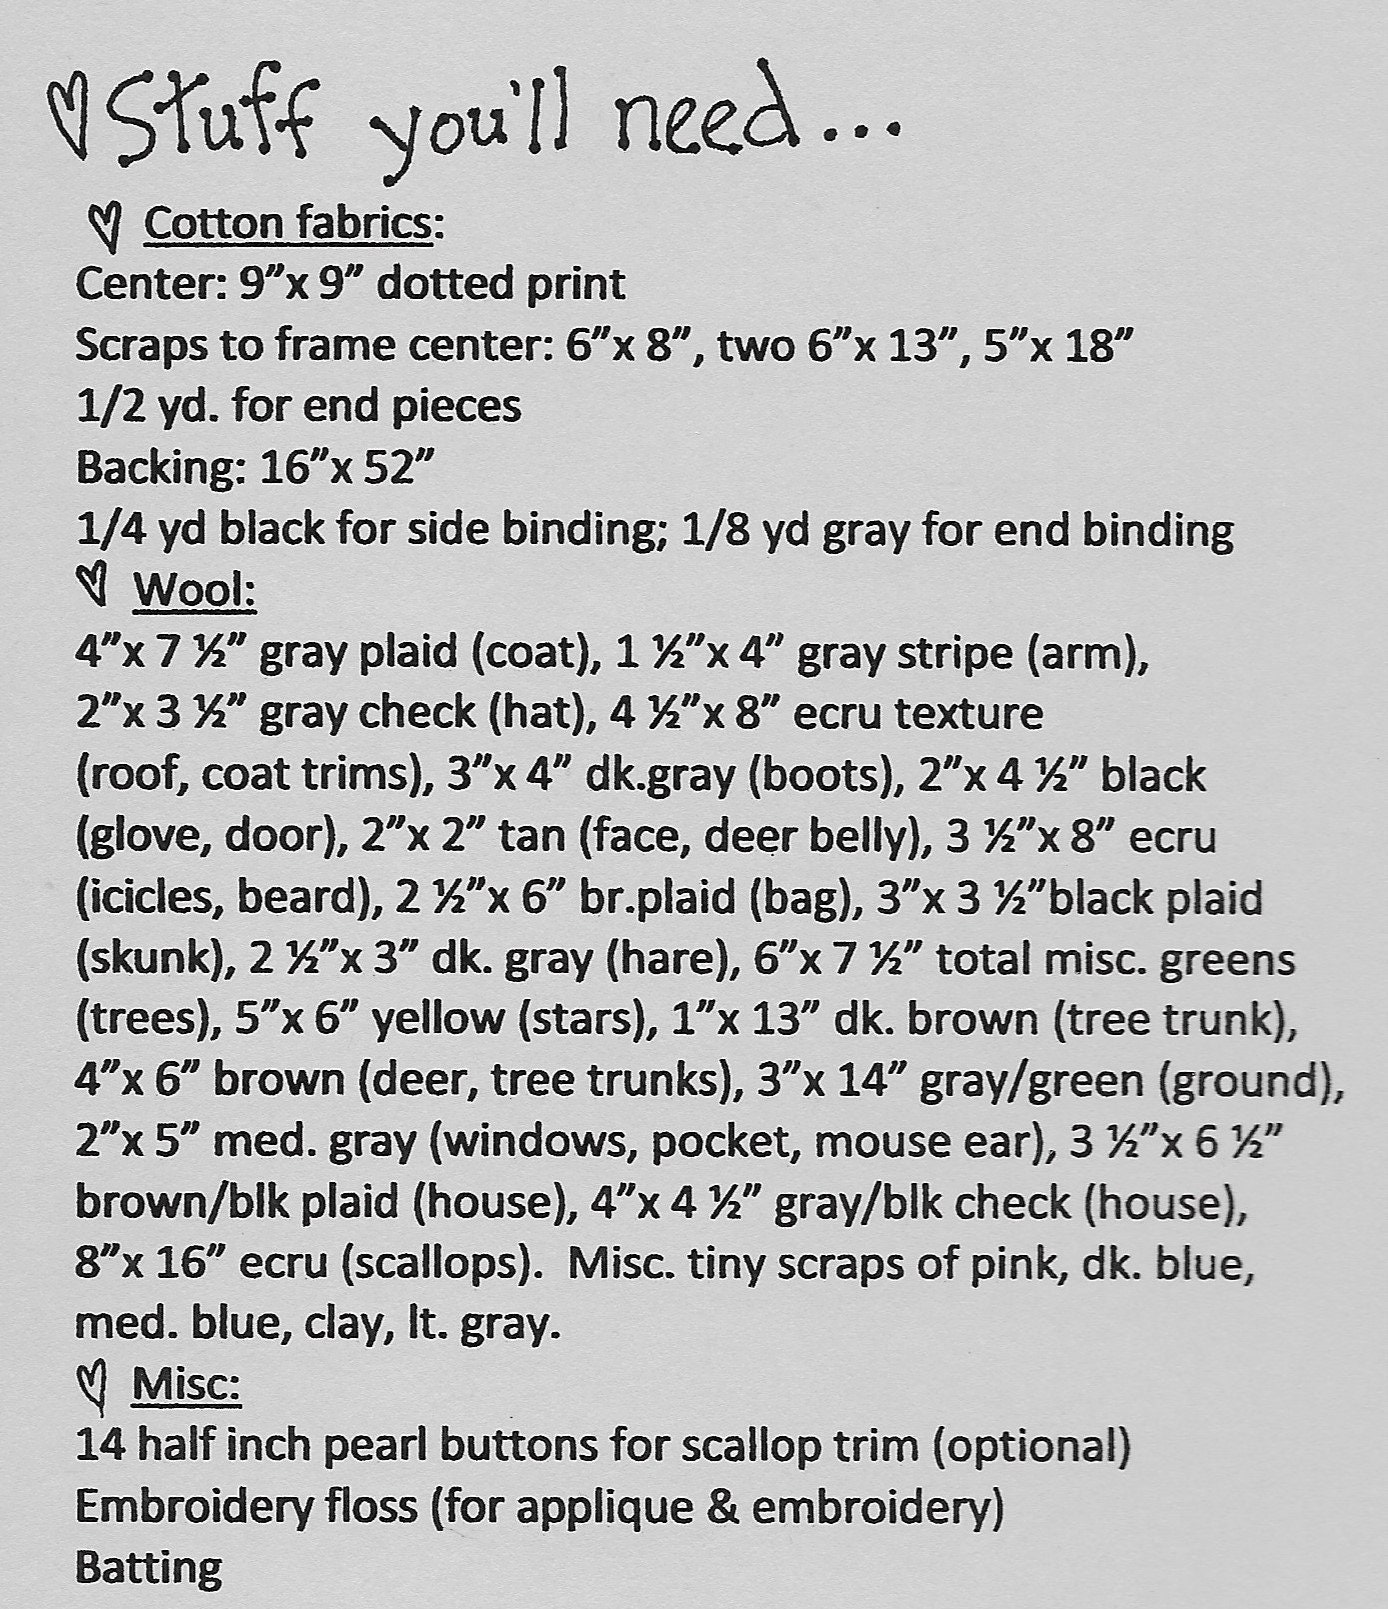 Stuff you'll need...
Cotton fabrics:
Center: 9”x 9” dotted print
Scraps to frame center: 6”x 8”, two 6”x 13”, 5”x 18”
1/2 yd. for end pieces
Backing: 16”x 52”
1/4 yd black for side binding; 1/8 yd gray for end binding
Wool:
4”x 7 ½” gray plaid (coat), 1 ½”x 4” gray stripe (arm),
2”x 3 ½” gray check (hat), 4 ½”x 8” ecru texture
(roof, coat trims), 3”x 4” dk.gray (boots), 2”x 4 ½” black
(glove, door), 2”x 2” tan (face, deer belly), 3 ½”x 8” ecru
(icicles, beard), 2 ½”x 6” br.plaid (bag), 3”x 3 ½”black plaid
(skunk), 2 ½”x 3” dk. gray (hare), 6”x 7 ½” total misc. greens
(trees), 5”x 6” yellow (stars), 1”x 13” dk. brown (tree trunk),
4”x 6” brown (deer, tree trunks), 3”x 14” gray/green (ground),
2”x 5” med. gray (windows, pocket, mouse ear), 3 ½”x 6 ½”
brown/blk plaid (house), 4”x 4 ½” gray/blk check (house),
8”x 16” ecru (scallops).  Misc. tiny scraps of pink, dk. blue,
med. blue, clay, lt. gray.
Misc:
14 half inch pearl buttons for scallop trim (optional)
Embroidery floss (for applique & embroidery)
Batting